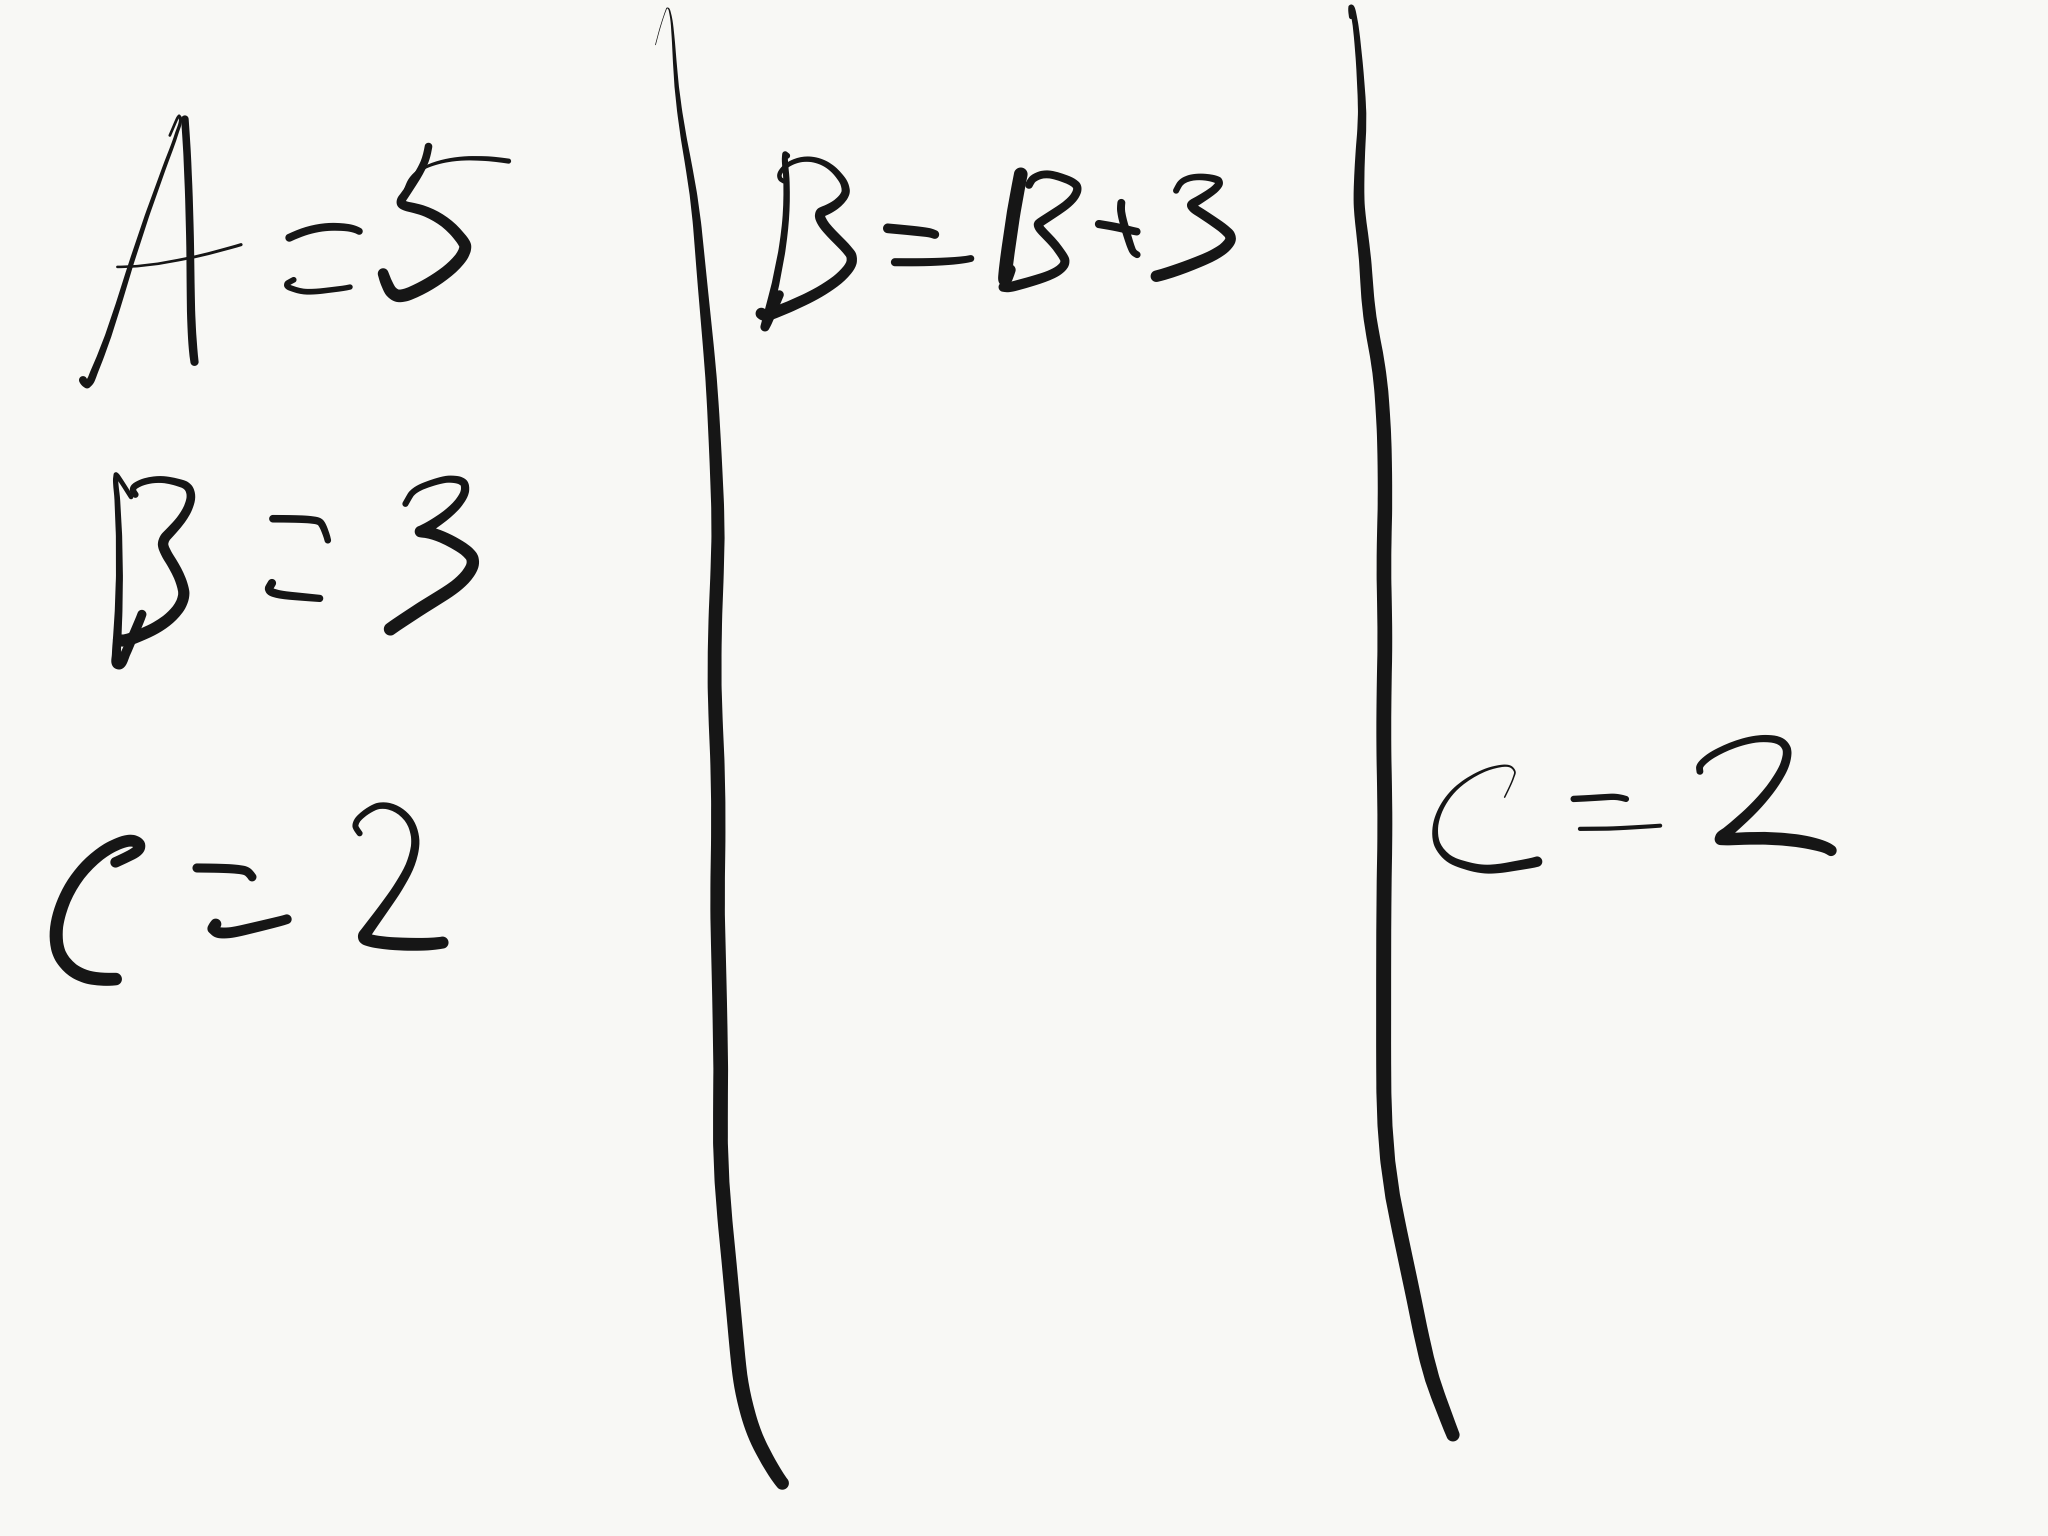 A = 5
B = 3
C = 2
B = B + 3
C = 2